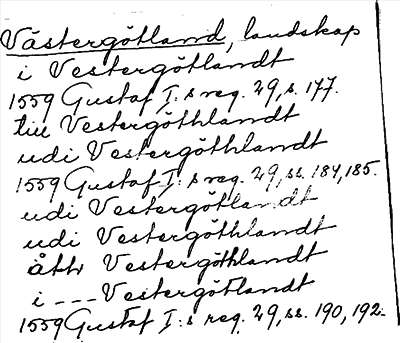 Västergötland, landskap
i Vestergötlandt
1559 Gustaf I:s reg. 29, s. 177.
till Vestergöthlandt
udi Vestergöthlandt
1559 Gustaf I:s reg. 29, ss. 184, 185.
udi Vestergötlandt
udi Vestergöthlandt
åttv Vestergöthlandt
i --- Vestergötlandt
1559 Gustaf I:s reg. 29, ss. 190, 192.